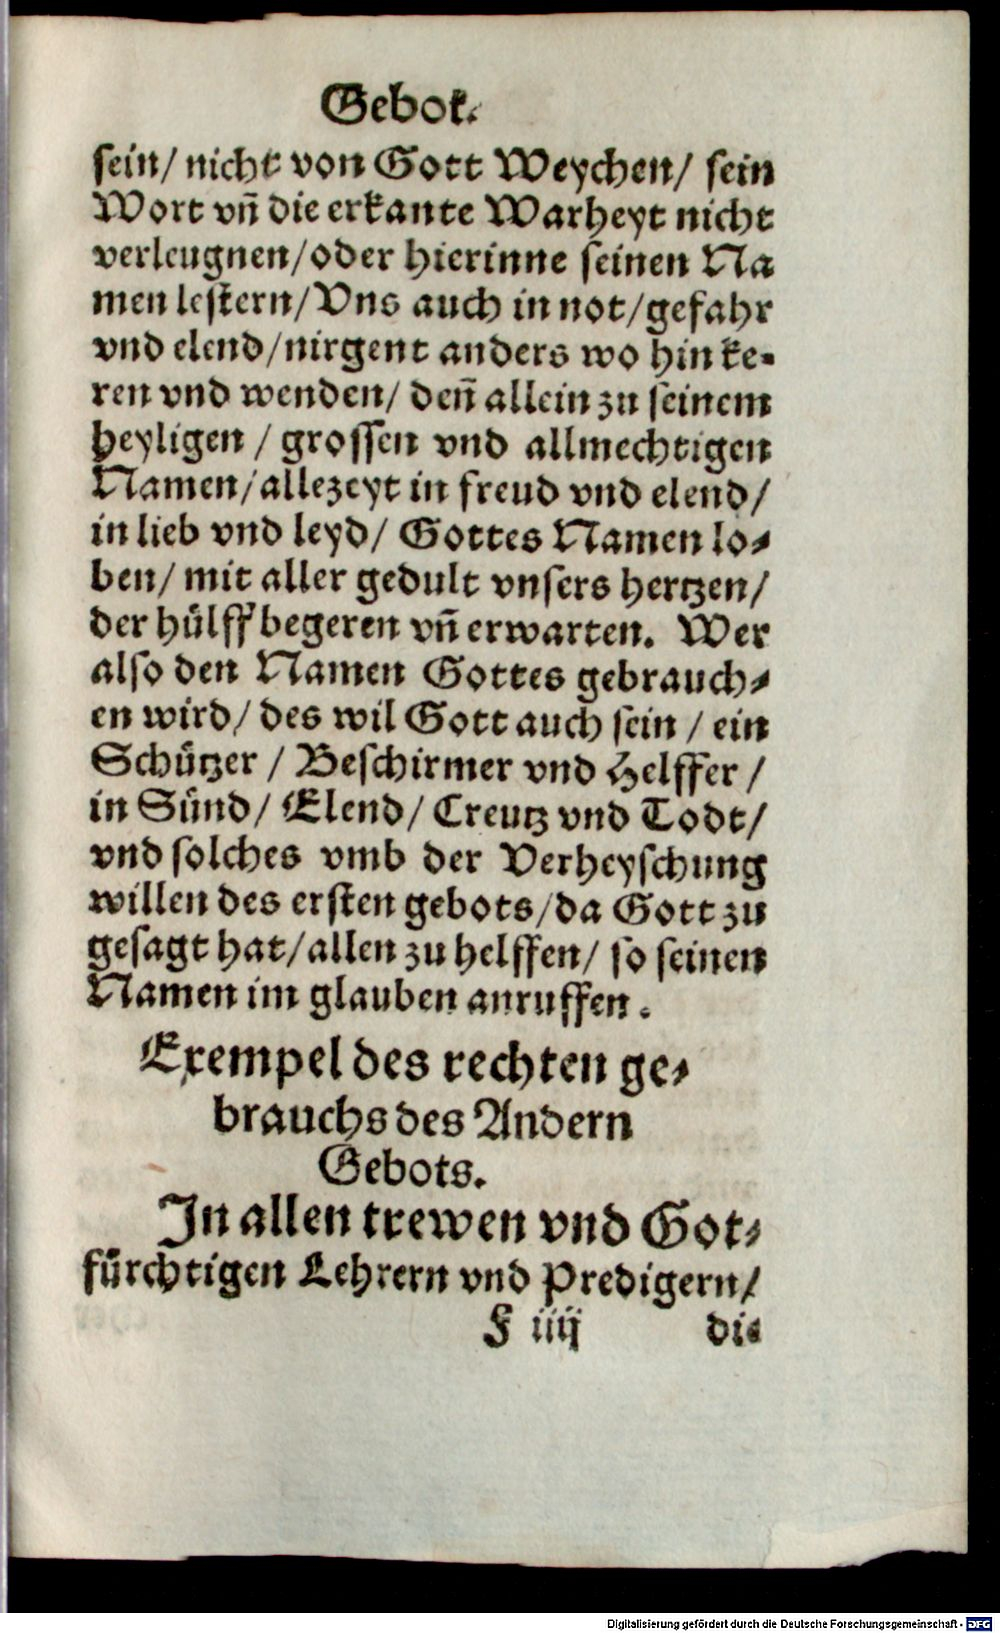 Gebot.
sein/ nicht von Gott Weychen/ sein
Wort vñ die erkante Warheyt nicht
verleugnen/oder hierinne seinen Na
men lestern/Vns auch in not/gefahr
vnd elend/nirgent anders wo hin ke-
ren vnd wenden/ deñ allein zu seinem
heyligen / grossen vnd allmechtigen
Namen/allezeyt in freud vnd elend/
in lieb vnd leyd/ Gottes Namen lo-
ben/ mit aller gedult vnsers hertzen/
der hülff begeren vñ erwarten. Wer
also den Namen Gottes gebrauch-
en wird/ des wil Gott auch sein / ein
Schützer / Beschirmer vnd Helffer /
in Sünd/ Elend/ Creutz vnd Todt/
vnd solches vmb der Verheyschung
willen des ersten gebots/da Gott zu
gesagt hat/allen zu helffen/ so seinen
Namen im glauben anruffen.
Exempel des rechten ge-
brauchs des Andern
Gebots.
In allen trewen vnd Got-
fürchtigen Lehrern vnd Predigern/
F iiij di-
Digitalisierung gefördert durch die Deutsche Forschungsgemeinschaft - DFG